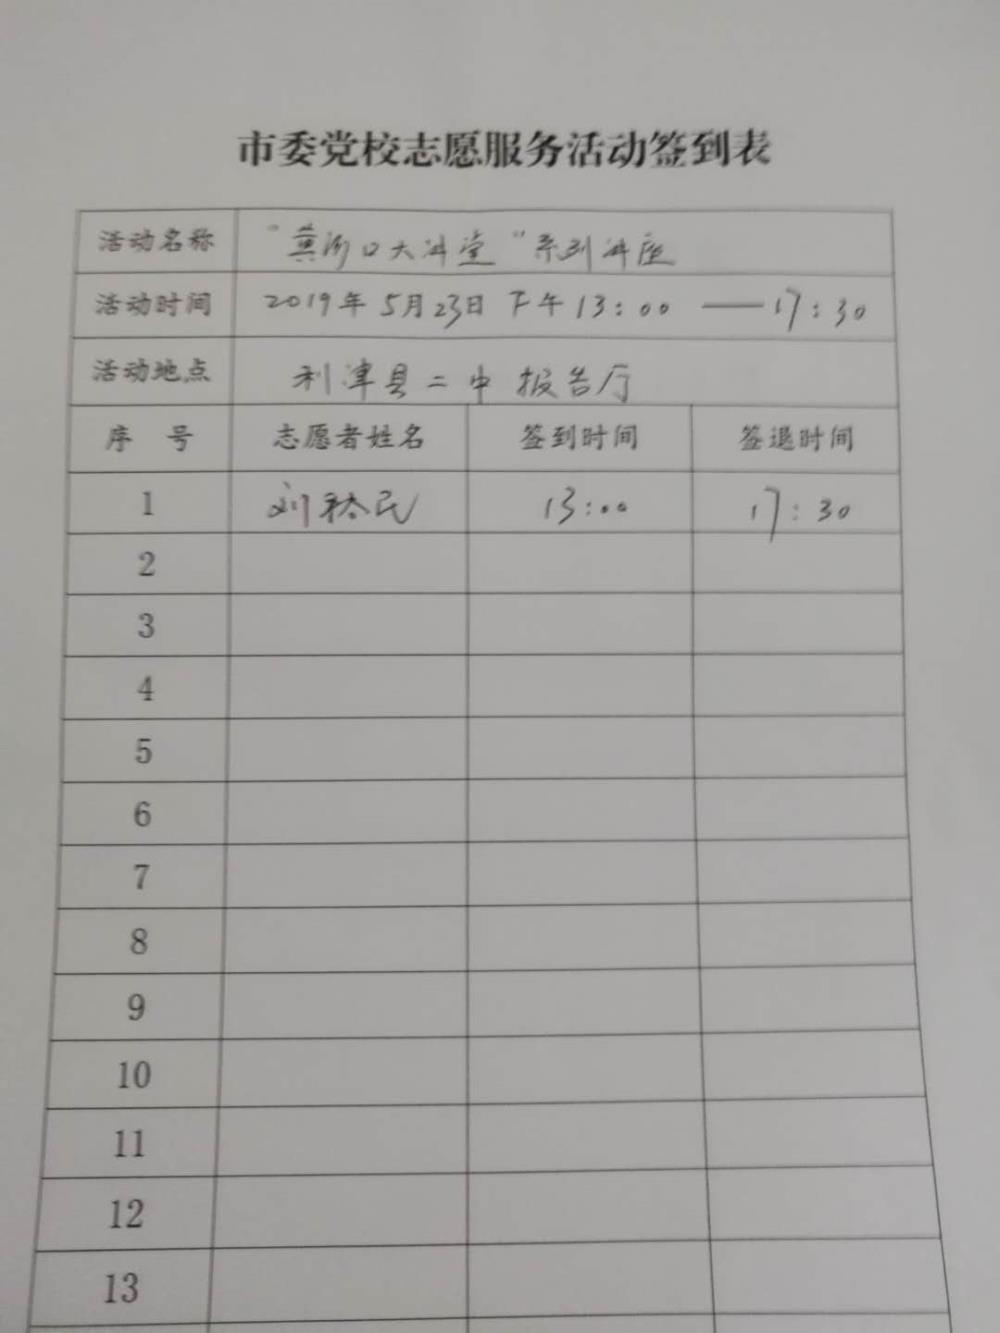 市委党校志愿服务活动签到表
活动名称 "黄河口大讲堂"系列讲座
活动时间 2019年5月23日下午13:00 —— 17:30
活动地点 利津县二中报告厅
序 号 志愿者姓名 签到时间 签退时间
1 刘 民 13:00 17:30
2
3
4
5
6
7
8
9
10
11
12
13